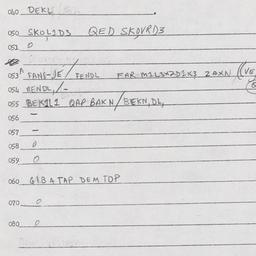 040 DEKU
050 SKOL1D3 QED SKOVRD3
051 0
053 FANG-JE/ FENDL FAR-M1LSXZD1X3 ZAXN ((VE
054 RENDL,/-
055 BEK1L1 QAP BAKN/BEKN,DL,
056 –
057 –
058 0
059 0
060 G1B A TAP DEM TOP
070 0
080 0